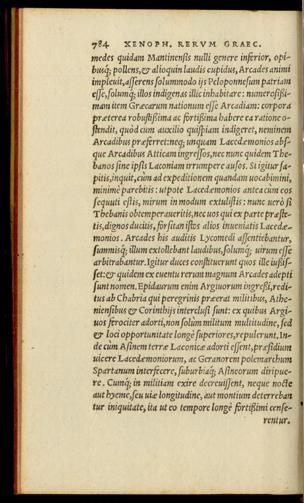 784 XENOPH. RERVM GRAEC.
medes quidam Mantinensis nulli genere inferior, opi-
busq; pollens, & alioquin laudis cupidus, Arcades animi
impleuit, asserens solummodo ijs Peloponnesum patriam
esse, solumq; illos indigenas illic inhabitare: numerosissi-
mam item Græcarum nationum esse Arcadiam: corpora
præterea robustissima ac fortissima habere ea ratione o-
stendit, quòd cum auxilio quispiam indigeret, neminem
Arcadibus præferret: neq; unquam Lacedæmonios abs-
que Arcadibus Atticam ingressos, nec nunc quidem The-
banos sine ipsis Laconiam irrumpere ausos. Si igitur sa-
pitis, inquit, cùm ad expeditionem quandam uocabimini,
minimè parebitis: utpote Lacedæmonios antea cùm eos
sequuti estis, mirum in modum extulistis: nunc uerò si
Thebanis obtemperaueritis, nec uos qui ex parte præste-
tis, dignos ducitis, forsitan istos alios inueniatis Lacedæ-
monios. Arcades his auditis Lycomedi assentiebantur,
summisq; illum extollebant laudibus, solumq; uirum esse
arbitrabantur. Igitur duces constituerunt quos ille iussis-
set: & quidem ex euentu rerum magnum Arcades adepti
sunt nomen. Epidaurum enim Argiuorum ingressi, redi-
tus ab Chabria qui peregrinis præerat militibus, Athe-
niensibus & Corinthijs interclusi sunt: ex quibus Argi-
uos ferociter adorti, non solùm militum multitudine, sed
& loci opportunitate longè superiores, repulerunt. In-
de cùm Asinem terræ Laconicæ adorti essent, præsidium
uicere Lacedæmoniorum, ac Geranorem polemarchum
Spartanum interfecere, suburbiaq; Asineorum diripue-
re. Cumq; in militiam exire decreuissent, neque nocte
aut hyeme, seu uiæ longitudine, aut montium deterreban
tur iniquitate, ita ut eo tempore longè fortissimi cense-
rentur.